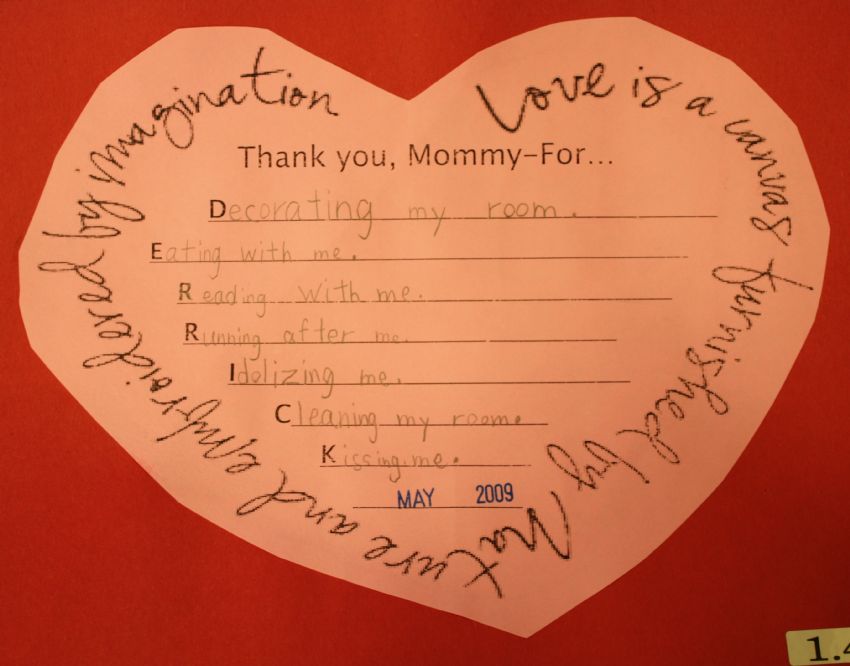 Love is a canvas furnished by Nature and embroidered by imagination
Thank you, Mommy-For...
Decorating my room.
Eating with me.
Reading with me.
Running after me.
Idolizing me.
Cleaning my room.
Kissing me.
MAY 2009